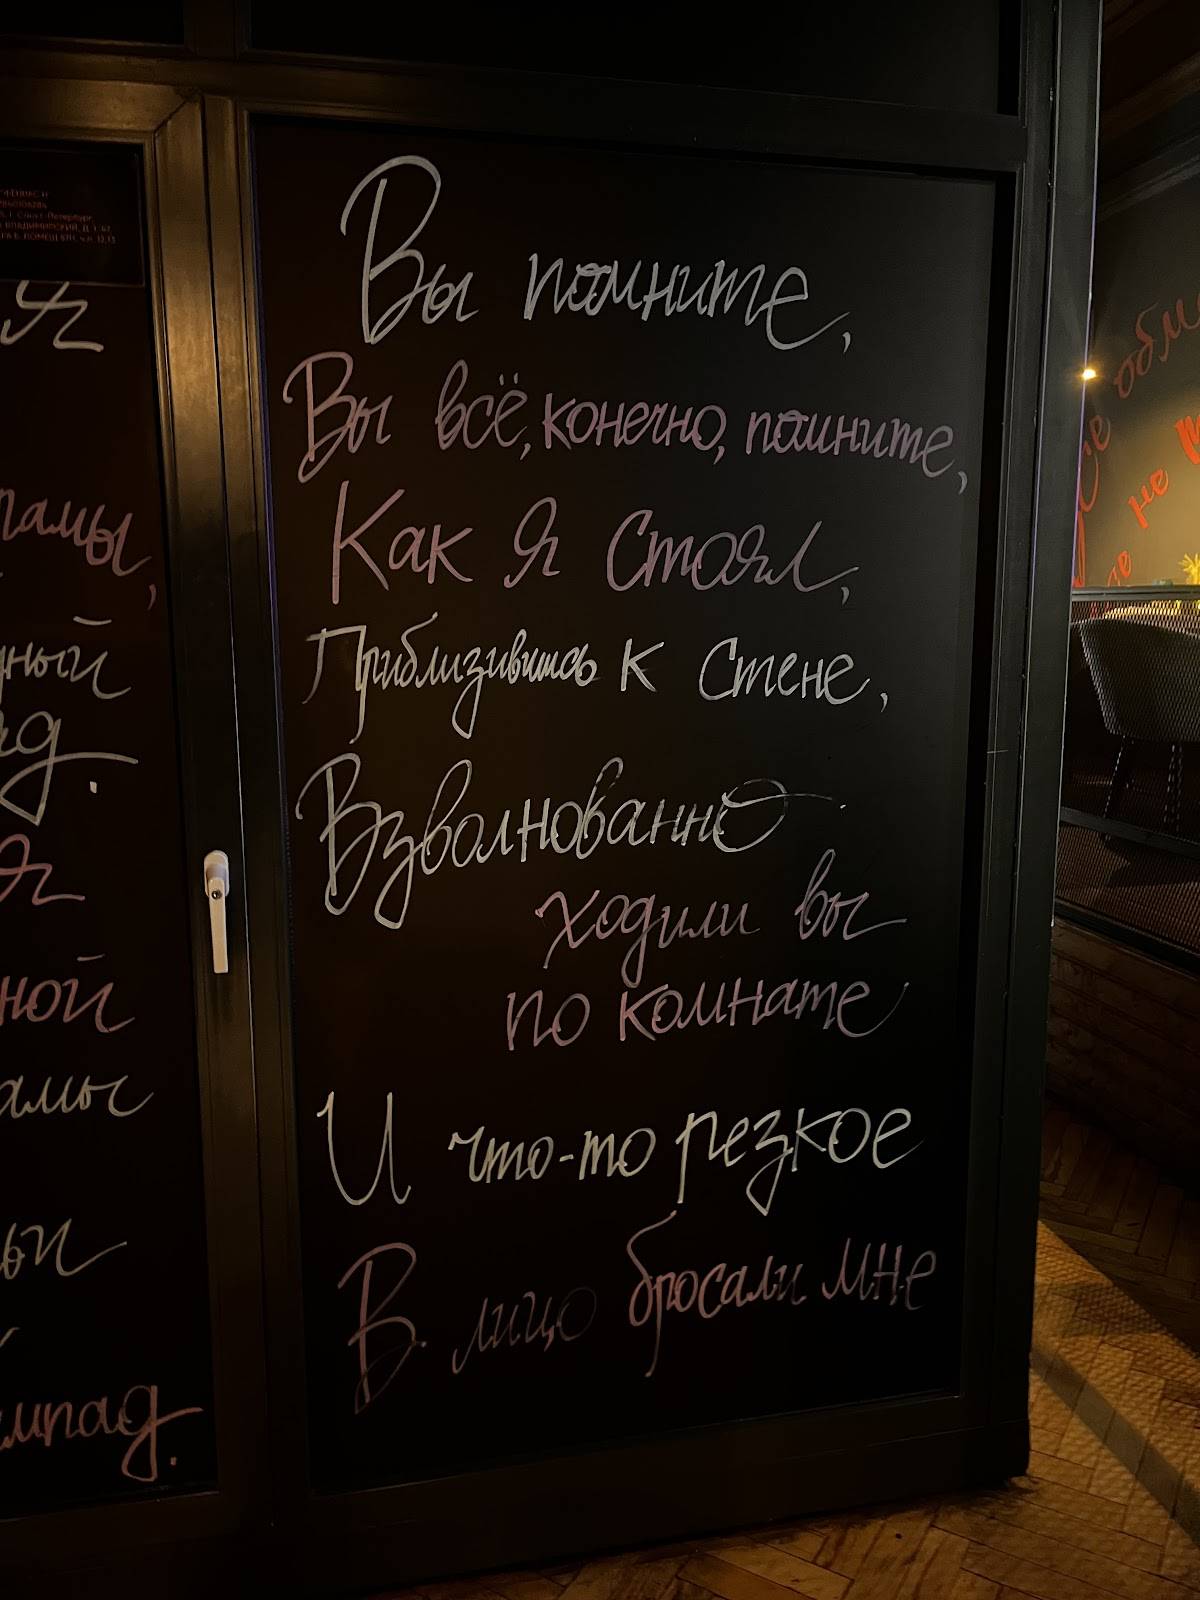 г. Санкт-Петербург,
ВЛАДИМИРСКИЙ, Д.
памы,
ный
ной
мпад.
Вы помните,
Вы всё, конечно, помните,
Как я стоял,
Приблизившись к стене,
Взволнованно
ходили вы
по комнате
И что-то резкое
В лицо бросали мне
не